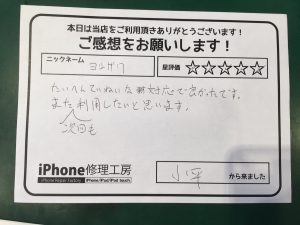 本日は当店をご利用頂きありがとうございます!
ご感想をお願いします!
ニックネーム
星評価 ☆☆☆☆☆
たいへんていねいな対応で良かったです。
また利用したいと思います。
次回も
iPhone修理工房
iPhone Repair Factory iPhone/iPad/iPod touch
小平 から来ました